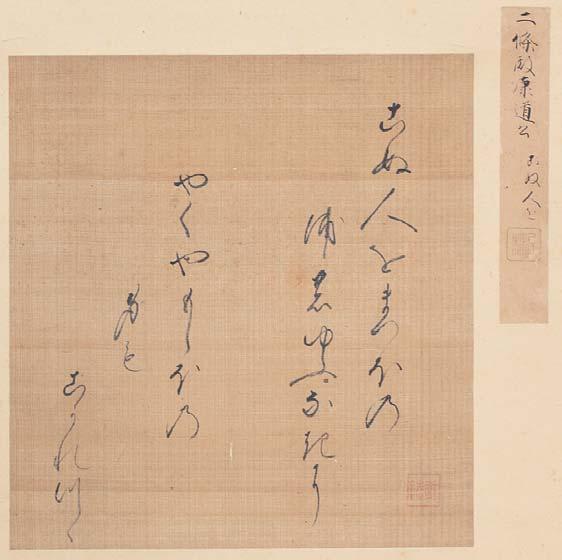 二條殿康道公 こぬ人を
こぬ人をまつほの
浦のゆふなきに
やくやもしほの
身も
こかれつゝ